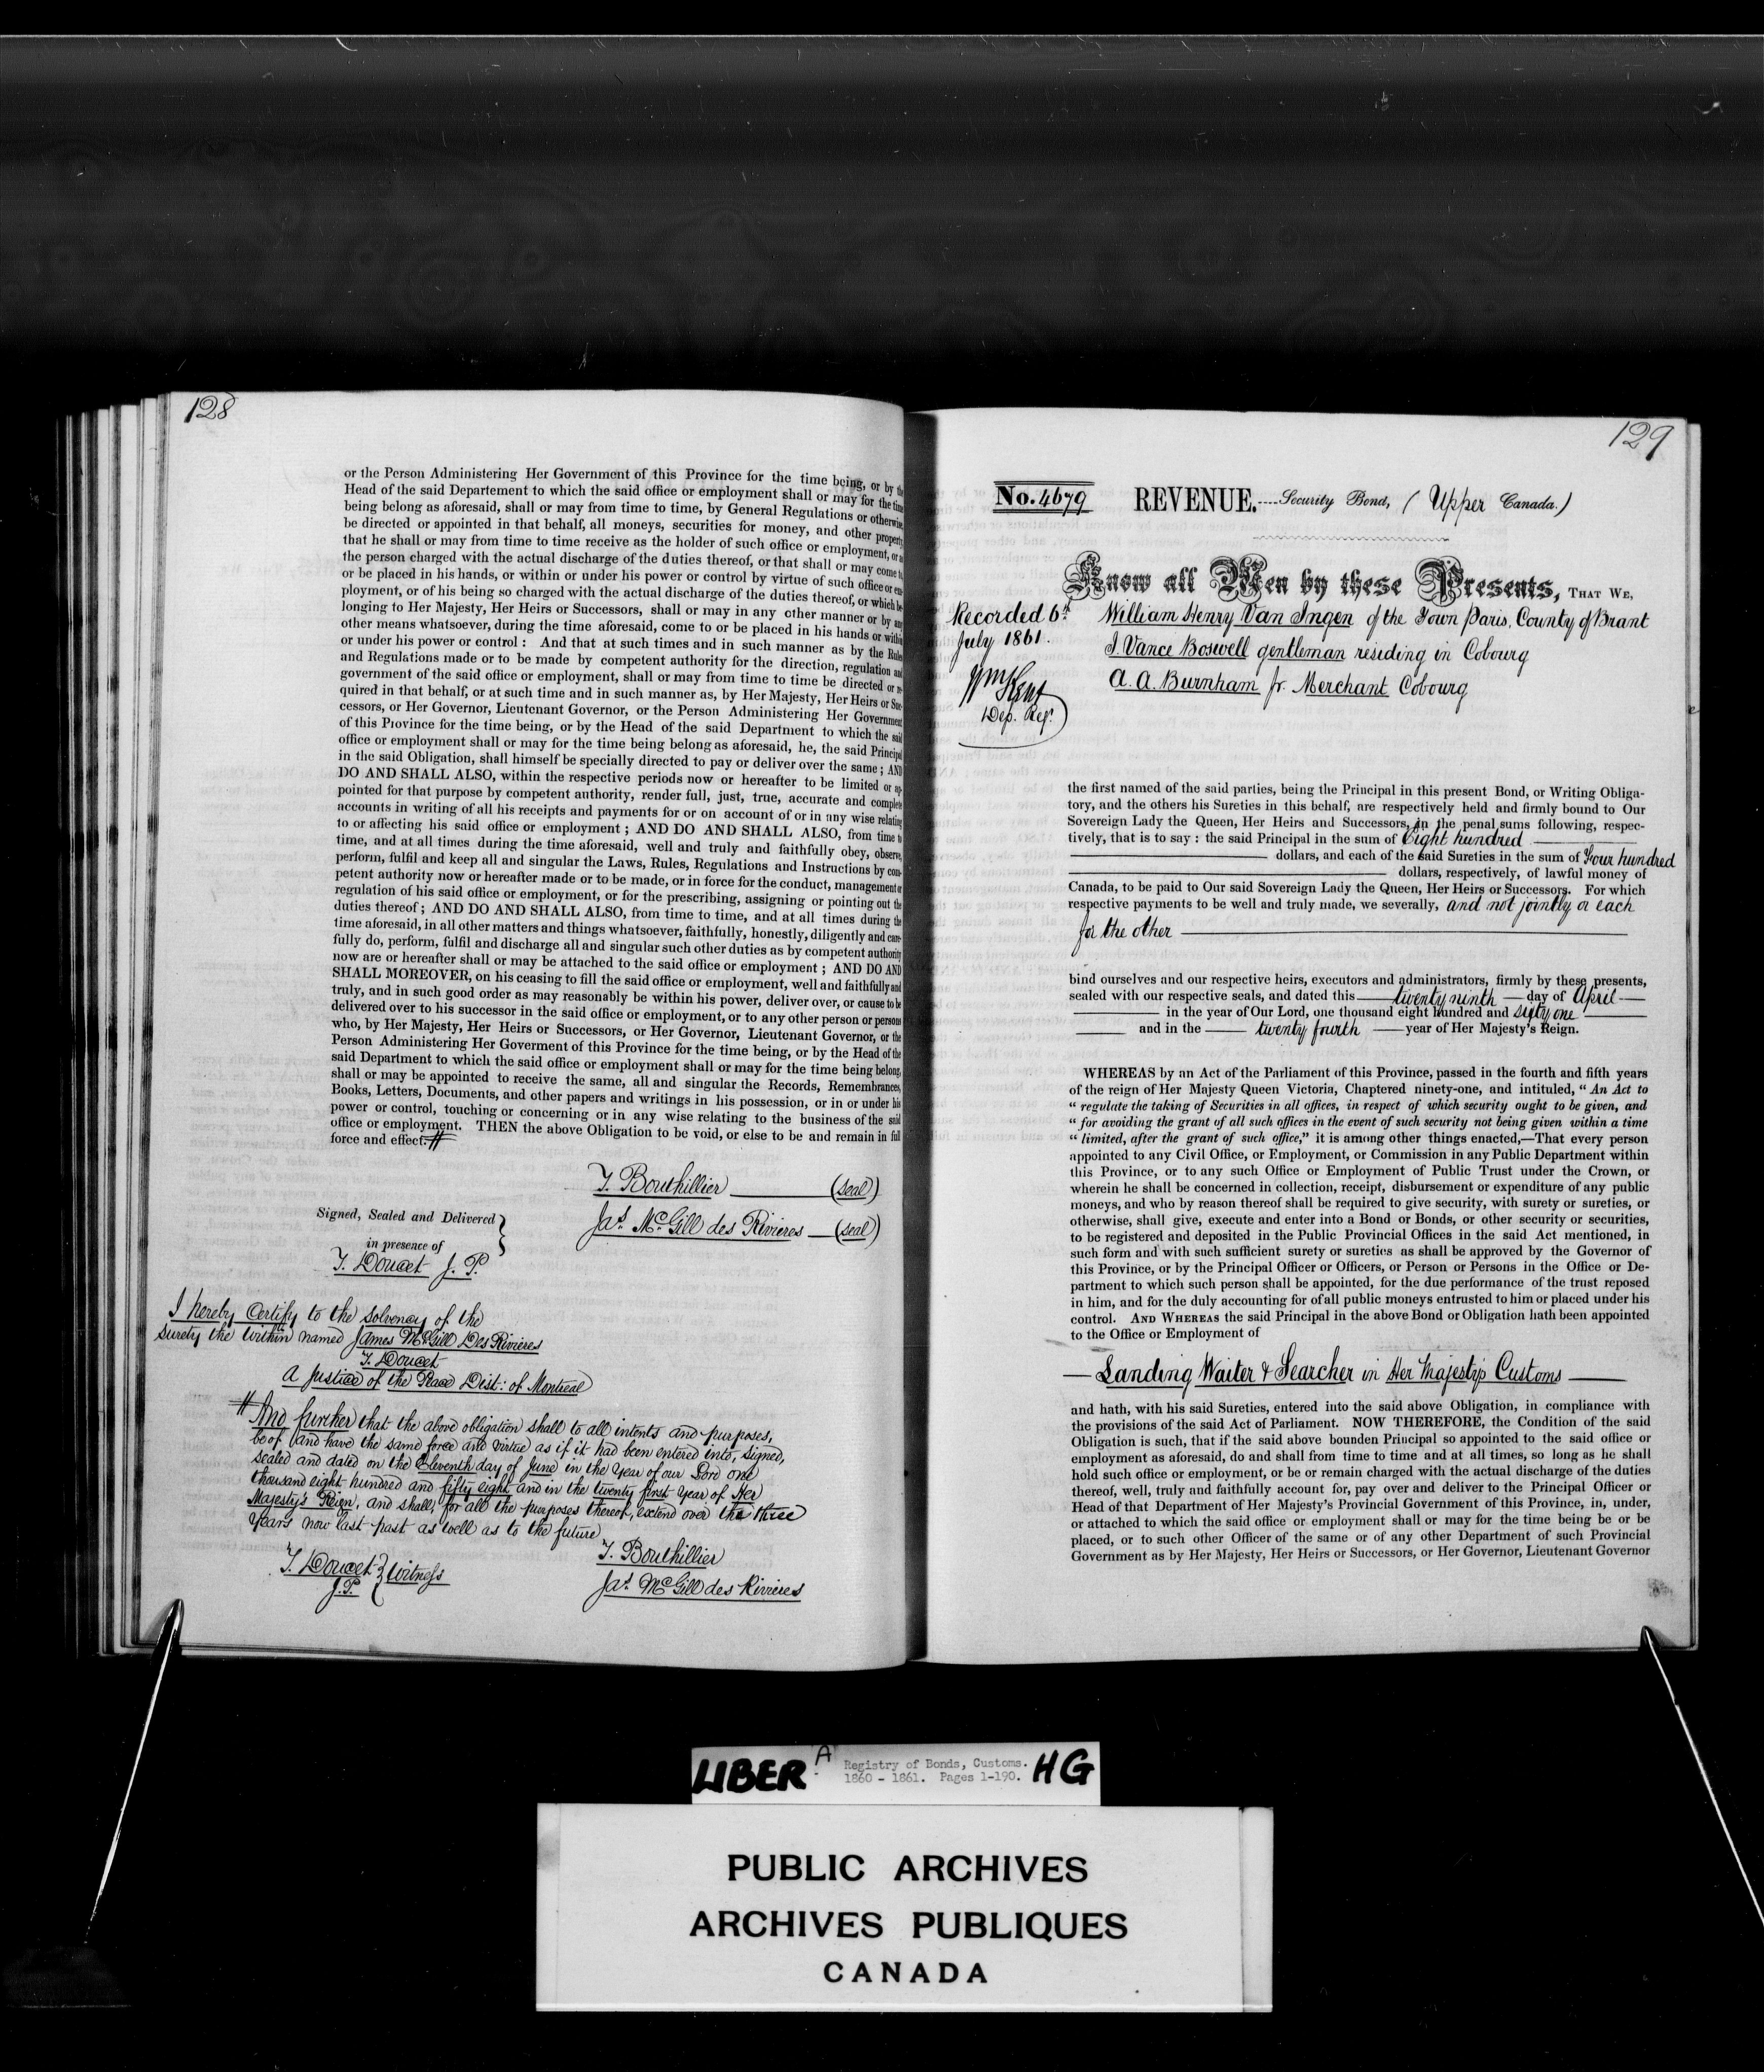 128
or the Person Administering Her Government of this Province for the time being, or by the
Head of the said Departement to which the said office or employment shall or may for the time
being belong as aforesaid, shall or may from time to time, by General Regulations or otherwise,
be directed or appointed in that behalf, all moneys, securities for money, and other property
that he shall or may from time to time receive as the holder of such office or employment, or as
the person charged with the actual discharge of the duties thereof, or that shall or may come to
or be placed in his hands, or within or under his power or control by virtue of such office or em-
ployment, or of his being so charged with the actual discharge of the duties thereof, or which be-
longing to Her Majesty, Her Heirs or Successors, shall or may in any other manner or by any
other means whatsoever, during the time aforesaid, come to or be placed in his hands or within
or under his power or control : And that at such times and in such manner as by the Rules
and Regulations made or to be made by competent authority for the direction, regulation and
government of the said office or employment, shall or may from time to time be directed or re-
quired in that behalf, or at such time and in such manner as, by Her Majesty, Her Heirs or Suc-
cessors, or Her Governor, Lieutenant Governor, or the Person Administering Her Government
of this Province for the time being, or by the Head of the said Department to which the said
office or employment shall or may for the time being belong as aforesaid, he, the said Principal
in the said Obligation, shall himself be specially directed to pay or deliver over the same ; AND
DO AND SHALL ALSO, within the respective periods now or hereafter to be limited or ap-
pointed for that purpose by competent authority, render full, just, true, accurate and complete
accounts in writing of all his receipts and payments for or on account of or in any wise relating
to or affecting his said office or employment ; AND DO AND SHALL ALSO, from time to
time, and at all times during the time aforesaid, well and truly and faithfully obey, observe,
perform, fulfil and keep all and singular the Laws, Rules, Regulations and Instructions by com-
petent authority now or hereafter made or to be made, or in force for the conduct, management or
regulation of his said office or employment, or for the prescribing, assigning or pointing out the
duties thereof ; AND DO AND SHALL ALSO, from time to time, and at all times during the
time aforesaid, in all other matters and things whatsoever, faithfully, honestly, diligently and care-
fully do, perform, fulfil and discharge all and singular such other duties as by competent authority
now are or hereafter shall or may be attached to the said office or employment ; AND DO AND
SHALL MOREOVER, on his ceasing to fill the said office or employment, well and faithfully and
truly, and in such good order as may reasonably be within his power, deliver over, or cause to be
delivered over to his successor in the said office or employment, or to any other person or persons
who, by Her Majesty, Her Heirs or Successors, or Her Governor, Lieutenant Governor, or the
Person Administering Her Goverment of this Province for the time being, or by the Head of the
said Department to which the said office or employment shall or may for the time being belong,
shall or may be appointed to receive the same, all and singular the Records, Remembrances,
Books, Letters, Documents, and other papers and writings in his possession, or in or under his
power or control, touching or concerning or in any wise relating to the business of the said
office or employment. THEN the above Obligation to be void, or else to be and remain in full
force and effect. #
T. Bouthillier (seal)
Jas. McGill des Rivieres (seal)
Signed, Sealed and Delivered
in presence of
T. Doucet J. P.
I hereby Certify to the solvency of the
surety the within named James McGill Des Rivieres
T. Doucet
A Justice of the Peace Dist: of Montreal
# And further that the above obligation shall to all intents and purposes,
be of and have the same force and virtue as if it had been entered into, signed,
sealed and dated on the Eleventh day of June in the Year of our Lord one
thousand eight hundred and fifty eight and in the twenty first Year of Her
Majesty's Reign, and shall, for all the purposes thereof, extend over the three
Years now last past as well as to the future
T. Bouthillier
T. Doucet } Witness
J.P.
Jas. McGill des Rivieres
129
No. 4679 REVENUE.----Security Bond, (Upper Canada.)
Know all Men by these Presents, THAT WE,
Recorded 6th
July 1861.
Wm Kent
Dep. Reg.
William Henry Van Ingen of the Town Paris, County of Brant
J. Vance Boswell gentleman residing in Cobourg
A. A. Burnham Jr. Merchant Cobourg
the first named of the said parties, being the Principal in this present Bond, or Writing Obliga-
tory, and the others his Sureties in this behalf, are respectively held and firmly bound to Our
Sovereign Lady the Queen, Her Heirs and Successors, in the penal sums following, respec-
tively, that is to say : the said Principal in the sum of Eight hundred
dollars, and each of the said Sureties in the sum of Four hundred
dollars, respectively, of lawful money of
Canada, to be paid to Our said Sovereign Lady the Queen, Her Heirs or Successors. For which
respective payments to be well and truly made, we severally, and not jointly or each
for the other
bind ourselves and our respective heirs, executors and administrators, firmly by these presents,
sealed with our respective seals, and dated this twenty ninth day of April
in the year of Our Lord, one thousand eight hundred and sixty one
and in the twenty fourth year of Her Majesty's Reign.
WHEREAS by an Act of the Parliament of this Province, passed in the fourth and fifth years
of the reign of Her Majesty Queen Victoria, Chaptered ninety-one, and intituled, " An Act to
" regulate the taking of Securities in all offices, in respect of which security ought to be given, and
" for avoiding the grant of all such offices in the event of such security not being given within a time
" limited, after the grant of such office," it is among other things enacted,—That every person
appointed to any Civil Office, or Employment, or Commission in any Public Department within
this Province, or to any such Office or Employment of Public Trust under the Crown, or
wherein he shall be concerned in collection, receipt, disbursement or expenditure of any public
moneys, and who by reason thereof shall be required to give security, with surety or sureties, or
otherwise, shall give, execute and enter into a Bond or Bonds, or other security or securities,
to be registered and deposited in the Public Provincial Offices in the said Act mentioned, in
such form and with such sufficient surety or sureties as shall be approved by the Governor of
this Province, or by the Principal Officer or Officers, or Person or Persons in the Office or De-
partment to which such person shall be appointed, for the due performance of the trust reposed
in him, and for the duly accounting for of all public moneys entrusted to him or placed under his
control. AND WHEREAS the said Principal in the above Bond or Obligation hath been appointed
to the Office or Employment of
Landing Waiter & Searcher in Her Majesty's Customs
and hath, with his said Sureties, entered into the said above Obligation, in compliance with
the provisions of the said Act of Parliament. NOW THEREFORE, the Condition of the said
Obligation is such, that if the said above bounden Principal so appointed to the said office or
employment as aforesaid, do and shall from time to time and at all times, so long as he shall
hold such office or employment, or be or remain charged with the actual discharge of the duties
thereof, well, truly and faithfully account for, pay over and deliver to the Principal Officer or
Head of that Department of Her Majesty's Provincial Government of this Province, in, under,
or attached to which the said office or employment shall or may for the time being be or be
placed, or to such other Officer of the same or of any other Department of such Provincial
Government as by Her Majesty, Her Heirs or Successors, or Her Governor, Lieutenant Governor
LIBER A Registry of Bonds, Customs. HG
1860 - 1861. Pages 1-190.
PUBLIC ARCHIVES
ARCHIVES PUBLIQUES
CANADA